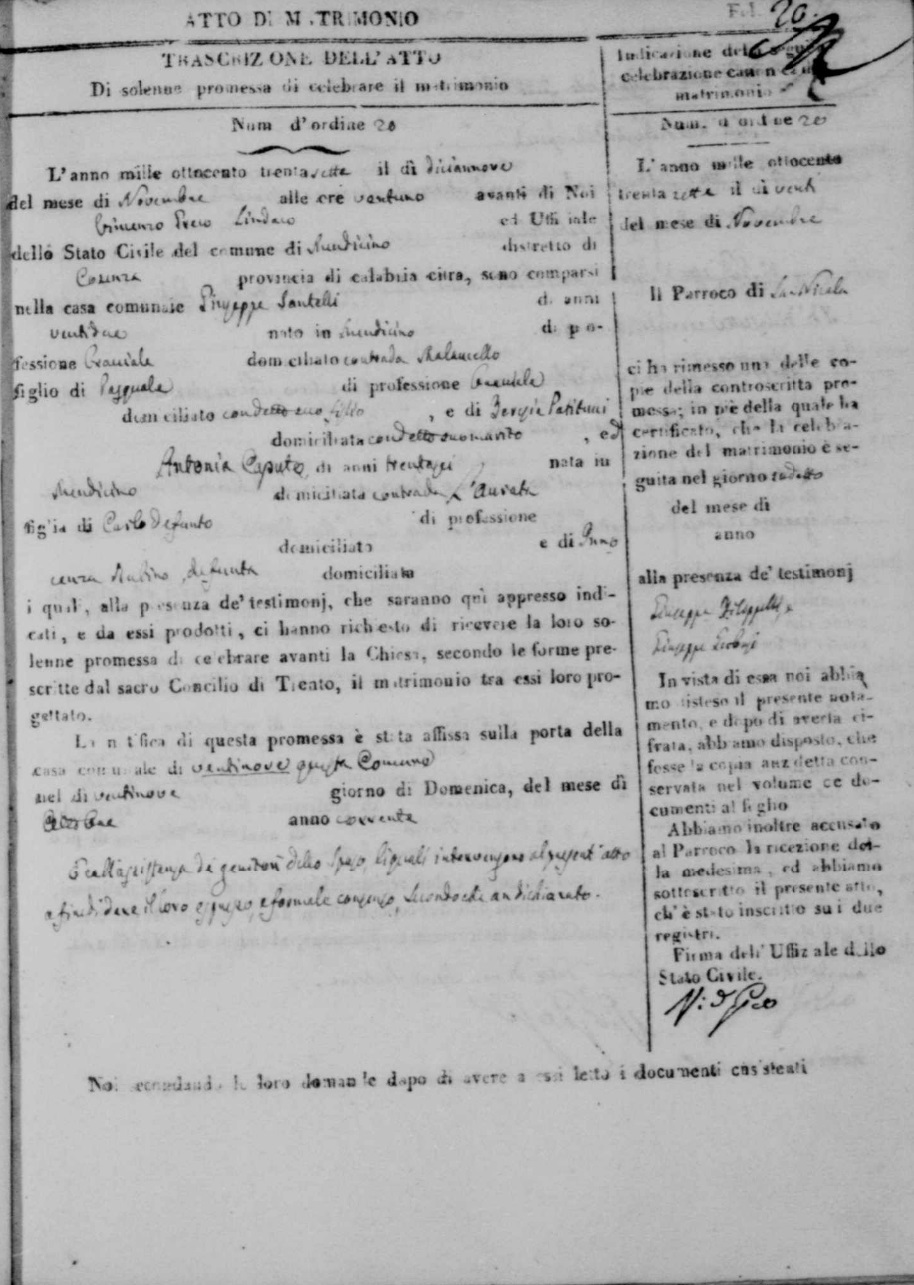 ATTO DI MATRIMONIO
TRASCRIZIONE DELL'ATTO
Di solenne promessa di celebrare il matrimonio
Num d'ordine 20
L'anno mille ottocento trenta sette il dì diciannove
del mese di Novembre alle ore ventuno avanti di Noi
Vincenzo Greco Sindaco ed Uffiziale
dello Stato Civile del comune di Mendicino distretto di
Cosenza provincia di calabria citra, sono comparsi
nella casa comunale Giuseppe Santelli di anni
ventidue nato in Mendicino di po-
fessione domiciliato contrada
figlio di Pasquale di professione
domiciliato con detto suo figlio, e di Bergia Patitucci
domiciliata con detto suo marito, ed
Antonia Caputo, di anni trentasei nata in
Mendicino domiciliata contrada L'Aurata
figlia di Carlo defunto di professione
domiciliato e di Inno
cenza Rubino, defunta domiciliata
i quali, alla presenza de' testimonj, che saranno quì appresso indi-
cati, e da essi prodotti, ci hanno richiesto di ricevere la loro so-
lenne promessa di celebrare avanti la Chiesa, secondo le forme pre-
scritte dal sacro Concilio di Trento, il matrimonio tra essi loro pro-
gettato.
La notifica di questa promessa è stata affissa sulla porta della
casa comunale di ventinove questa Comune
nel dì ventinove giorno di Domenica, del mese di
Ottobre anno corrente
E coll'assistenza de' genitori dello sposo, li quali intervengono al present'atto
a fin di dare il loro espresso, e formale consenso, secondo che an dichiarato.
Fol. 20.
Indicazione della seguita
celebrazione canonica del
matrimonio
Num. d'ordine 20
L'anno mille ottocento
trenta sette il dì venti
del mese di Novembre
Il Parroco di San Nicola
ci ha rimesso una delle co-
pie della controscritta pro-
messa; in piè della quale ha
certificato, che la celebra-
zione del matrimonio è se-
guita nel giorno sudetto
del mese di
anno
alla presenza de' testimonj
Giuseppe Filippelli, e
Giuseppe
In vista di essa noi abbia
mo disteso il presente nota-
mento, e dopo di averla ci-
frata, abbiamo disposto, che
fosse la copia anzidetta con-
servata nel volume de do-
cumenti al foglio
Abbiamo inoltre accusato
al Parroco la ricezione del-
la medesima, ed abbiamo
sottoscritto il presente atto,
ch'è stato inscritto su i due
registri.
Firma dell'Uffiziale dello
Stato Civile.
Noi secondando le loro domande dopo di avere a essi letto i documenti consistenti